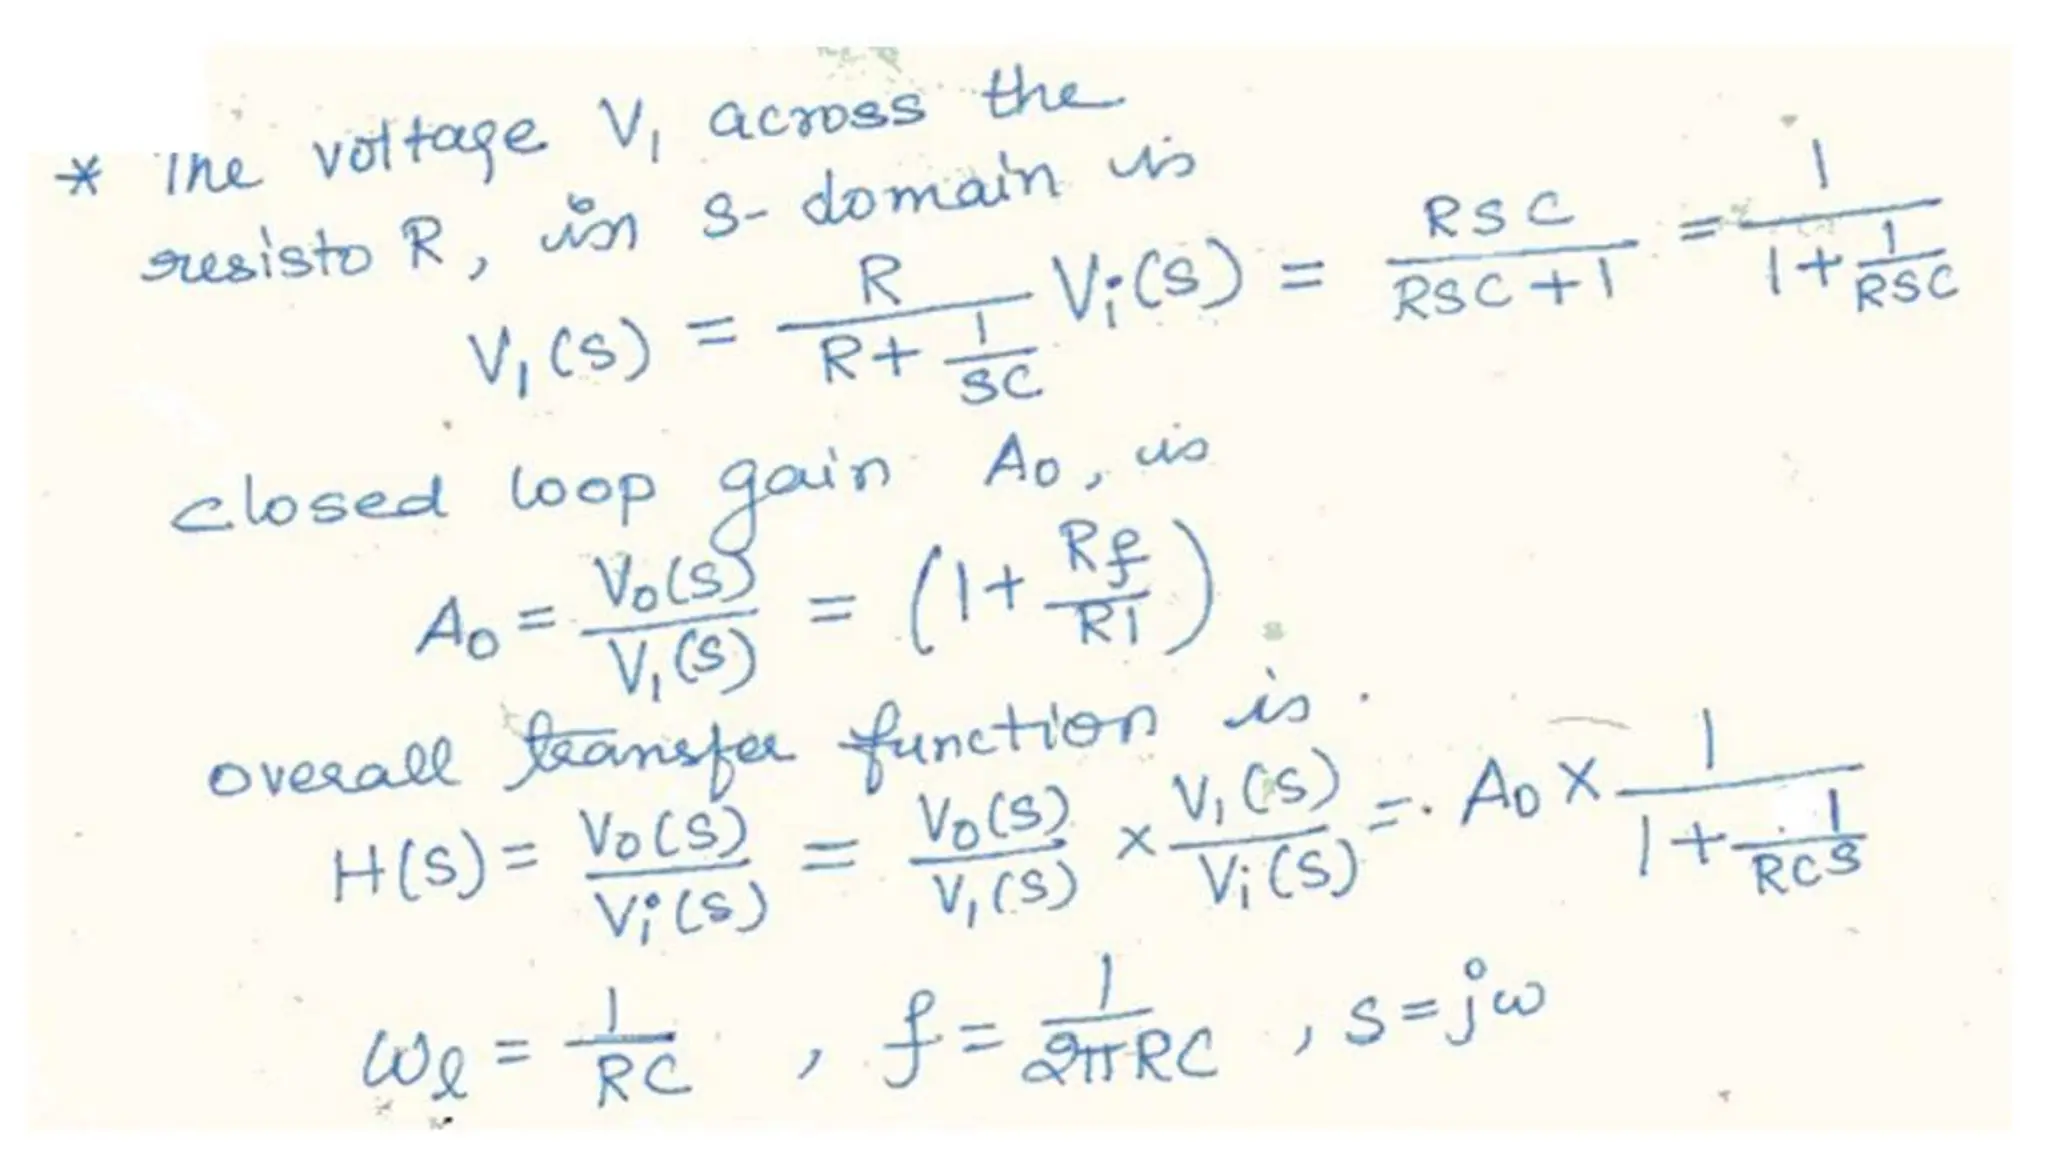 * The voltage V₁ across the
resisto R, in s-domain is
V₁(s) = R/(R + 1/SC) Vᵢ(s) = RSC/(RSC+1) = 1/(1 + 1/RSC)
closed loop gain A₀, is
A₀ = V₀(s)/V₁(s) = (1 + Rf/R1)
overall transfer function is.
H(s) = V₀(s)/Vᵢ(s) = V₀(s)/V₁(s) × V₁(s)/Vᵢ(s) = A₀ × 1/(1 + 1/RCS)
ωl = 1/RC , f = 1/2πRC , s = jω